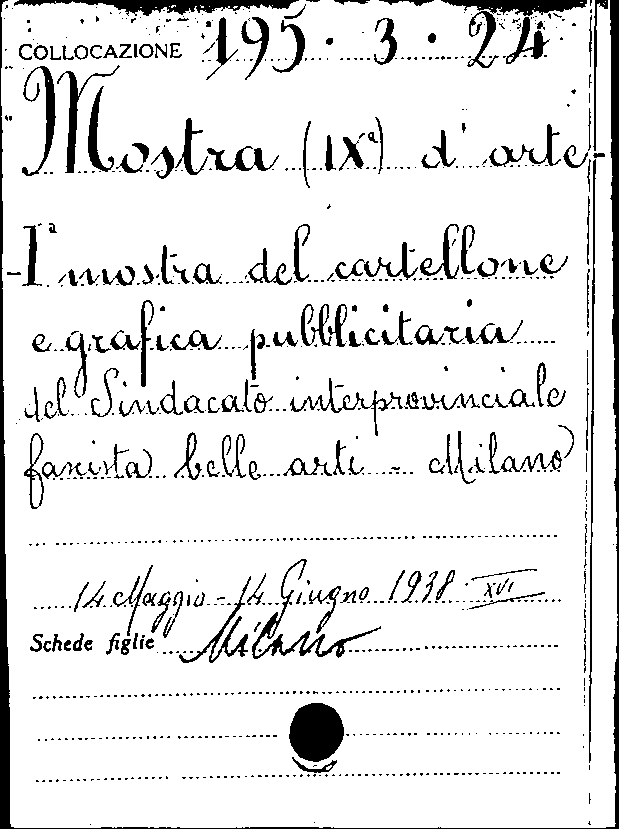 COLLOCAZIONE 195 . 3 . 24
Mostra (IXª) d'arte-
-Iª mostra del cartellone
e grafica pubblicitaria
del Sindacato interprovinciale
fascista belle arti - Milano
14 Maggio - 14 Giugno 1938 XVI
Schede figlie Milano